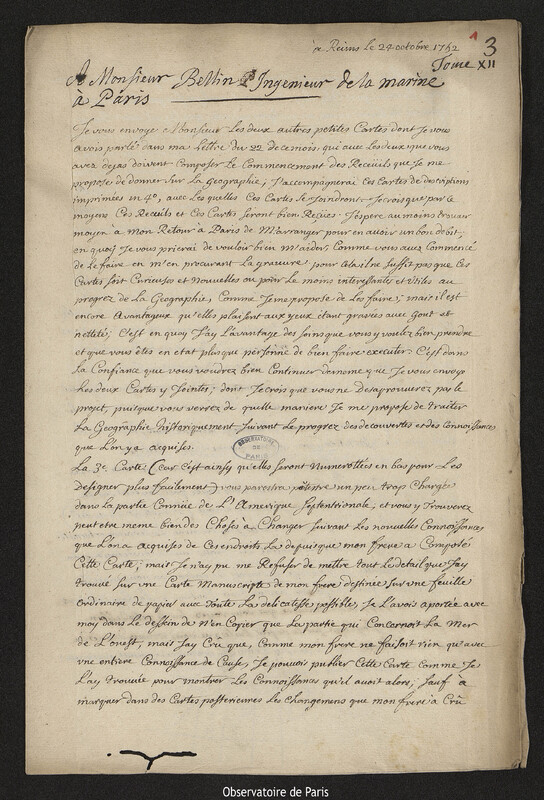 à Reims le 24 octobre 1752
1
3
Tome XII
A Monsieur Bellin Ingenieur de la marine
à Paris
Je vous envoye Monsieur les deux autres petites Cartes dont je vous
avois parlé dans ma lettre du 22 de ce mois qui avec les deux que vous
avez dejas doivent Composer le Commencement des Recüeils que Je me
propose de donner sur la Geographie; J'accompagnerai ces Cartes de descriptions
imprimées in 4º, avec lesquelles Ces Cartes se Joindront. Je crois que par le
moyens Ces Recüils et Ces Cartes seront bien Reçües. J'espere au moins trouver
moyen à mon Retour à Paris de M'arranger pour en avoir un bon debit;
en quoy Je vous prierai de vouloir bien m'aider, Comme vous avez Commencé
de le faire en m'en procurant la graveure pour cela il ne suffit pas que Ces
Cartes soit Curieuses et Nouvelles ou pour le moins interessantes et Utiles au
progrez de la Geographie, Comme Je me propose de les faire; mais il est
encore Avantageux qu'elles plaisent aux yeux étant gravées avec Gout et
netteté; C'est en quoy J'ay l'avantage des soins que vous y voulez bien prendre
et que vous êtes en etat plus que personne de bien faire executer. C'est dans
la Confiance que vous voudrez bien Continuer de meme que Je vous envoye
les deux Cartes y Jointes; dont Je crois que vous ne desaprouverez pas le
projet, puisque vous verrez de quelle maniere Je me propose de traiter
la Geographie historiquement suivant le progrez des decouvertes et des Connoissances
que l'on y a acquises.
OBSERVATOIRE
DE
PARIS
La 3e. Carte (car C'est ainsy qu'elles seront Numerotées en bas pour les
designer plus facilement) vous paroitra peutestre un peu trop Chargée
dans la partie Connüe de l'Amerique Septentrionale, et vous y trouverez
peut etre meme bien des Choses à Changer suivant les nouvelles Connoissances
que l'on a acquises de Ces endroits la depuis que mon frere a Composé
Cette Carte; mais Je n'ay pu me Refuser de mettre tout le detail que J'ay
trouvé sur une Carte Manuscripte de mon frere destinée sur une feuille
ordinaire de papier avec toute la delicatesse possible, Je l'avois aportée avec
moy dans le dessein de n'en Copier que la partie qui Concernoit la Mer
de l'ouest, mais J'ay Crû que, Comme mon frere ne faisoit rien qu'avec
une entiere Connoissance de Cause, Je pouvois publier Cette Carte comme Je
l'ay trouvée pour montrer les Connoissances qu'il avoit alors; sauf à
marquer dans des Cartes posterieures les Changemens que mon frere à Crû
Observatoire de Paris